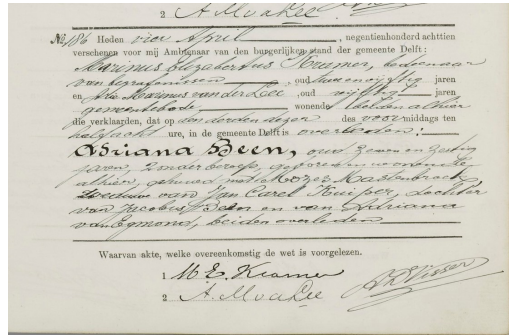 2 A. M. v. d. Lee
No. 186 Heden vier April, negentienhonderd achttien
verschenen voor mij Ambtenaar van den burgerlijken stand der gemeente Delft:
Marinus Elizabertus Kramer, bedienaar
van begrafenissen, oud tweeenvijftig jaren
en Arie Marinus van der Lee, oud vijftig jaren
gemeentebode, wonende beiden alhier
die verklaarden, dat op den derden dezer des voormiddags ten
half acht ure, in de gemeente Delft is overleden:
Adriana Been, oud zeven en zestig
jaren, zonder beroep, geboren en wonende
alhier, gehuwd met Mozes Mastenbroek
weduwe van Jan Carel Kuiper, dochter
van Jacobus Been en van Adriana
van Egmond, beiden overleden
Waarvan akte, welke overeenkomstig de wet is voorgelezen.
1 M. E. Kramer
2 A. M. v. d. Lee